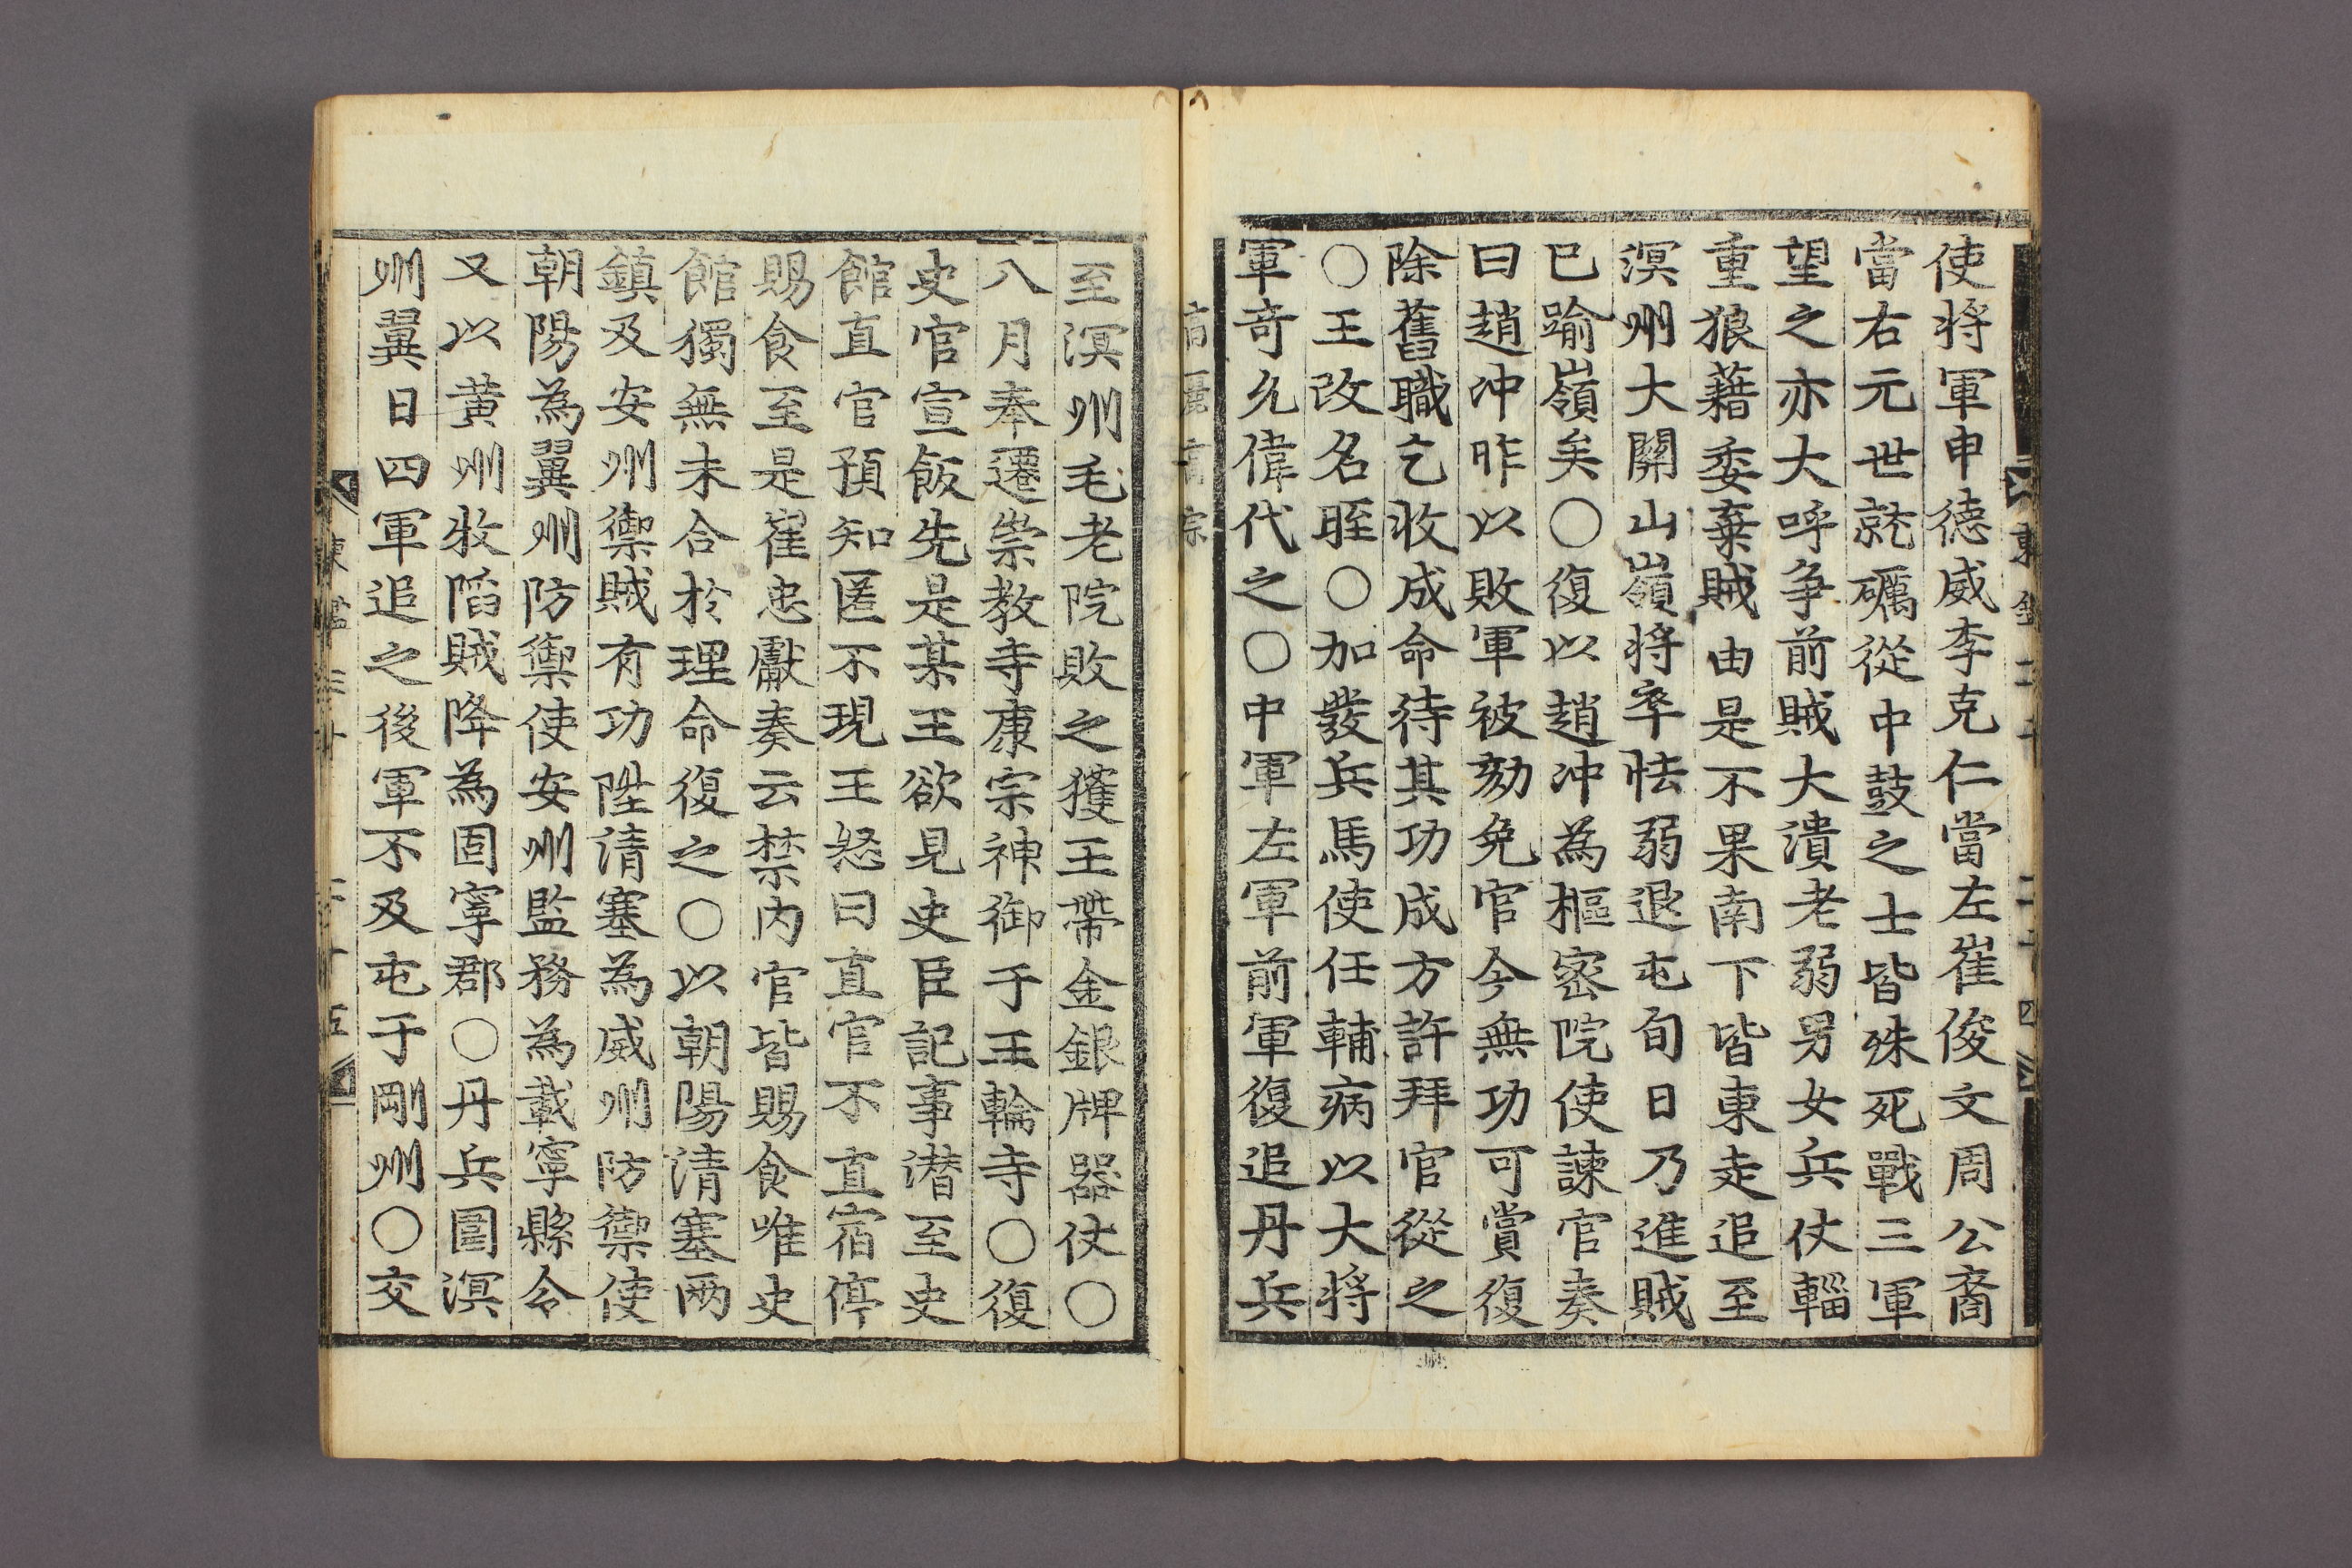 使將軍申德威李克仁當左崔俊文周公裔
當右元世就礪從中鼓之士皆殊死戰三軍
望之亦大呼爭前賊大潰老弱男女兵仗輜
重狼藉委棄賊由是不果南下皆東走追至
溟州大關山嶺將率怯弱退屯旬日乃進賊
已踰嶺矣○復以趙冲為樞密院使諫官奏
曰趙冲昨以敗軍被劾免官今無功可賞復
除舊職乞收成命待其功成方許拜官從之
○王改名晊○加發兵馬使任輔病以大將
軍奇允偉代之○中軍左軍前軍復追丹兵
至溟州毛老院敗之獲玉帶金銀牌器仗○
八月奉遷崇教寺康宗神御于王輪寺○復
史官宣飯先是某王欲見史臣記事潛至史
館直官預知匿不現王怒曰直官不直宿停
賜食至是崔忠獻奏云禁內官皆賜食唯史
館獨無未合於理命復之○以朝陽清塞兩
鎮及安州禦賊有功陞清塞為威州防禦使
朝陽為翼州防禦使安州監務為載寧縣令
又以黃州牧陷賊降為固寧郡○丹兵圍溟
州翼日四軍追之後軍不及屯于剛州○交